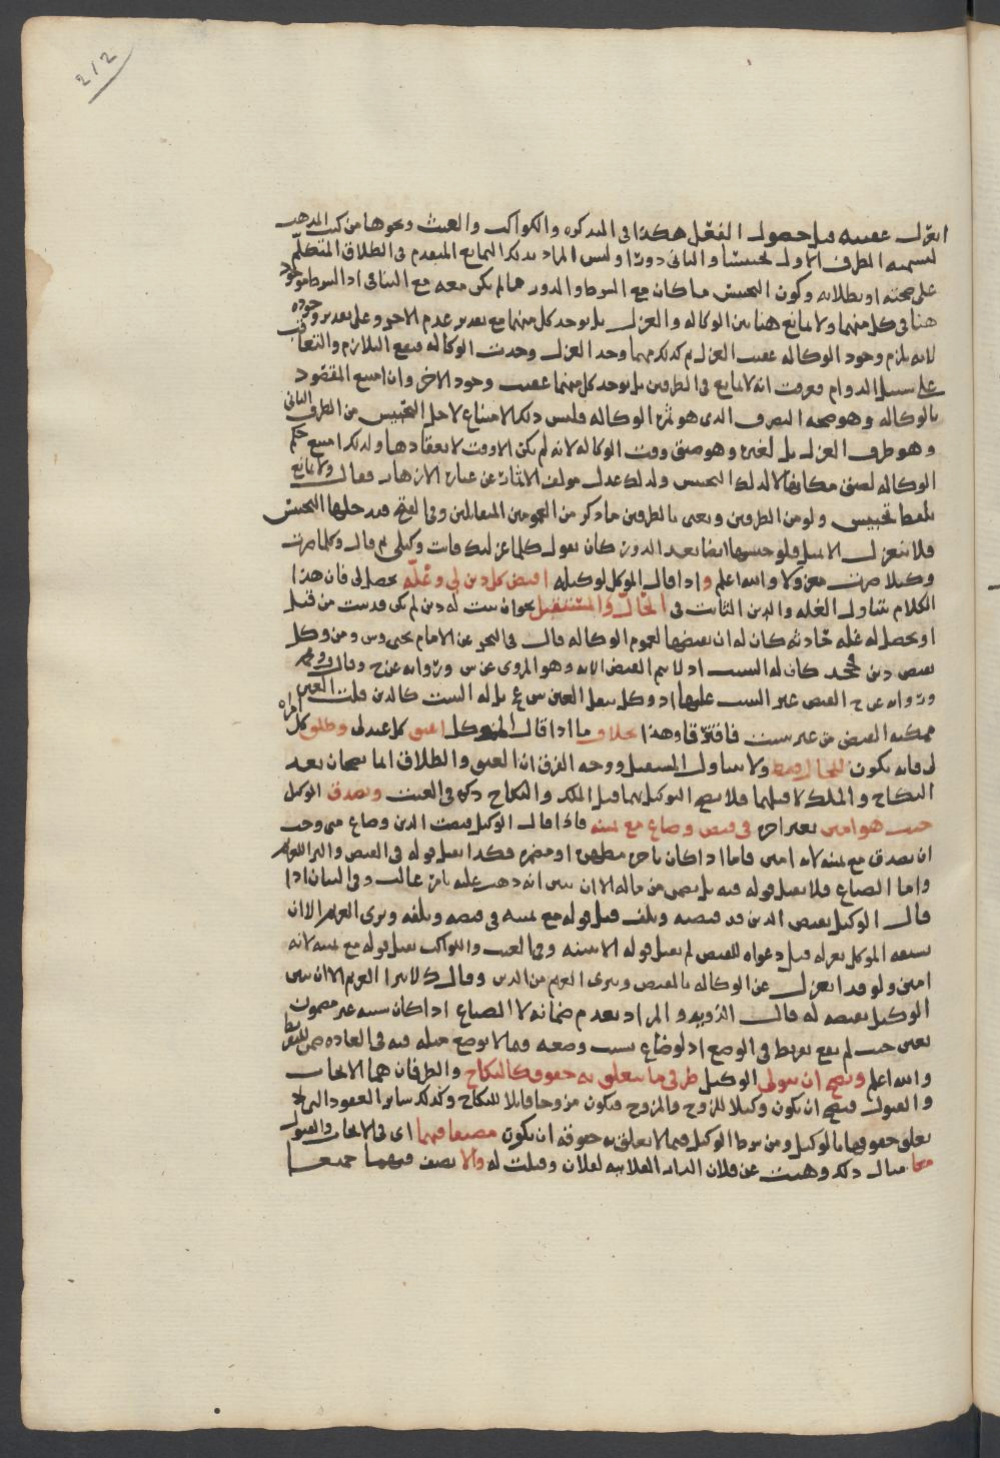 212
انعزل عقيبه قبل حصول الفعل هكذا في التذكره والكواكب والغيث ونحوها من كتب المذهب
الطرف الاول تحبيسا والثاني دورا وليس المراد بذلك التمانع المتقدم في الطلاق المتكلم
على صحته او بطلانه وكون التحبيس ما كان مع الشرط والدور مما لم يكن معه مع التنافي اذ الشرط موجود
هنا في كل منهما ولا تمانع هنا بين الوكاله والعزل بل يوجد كل منهما مع تقدير عدم الاخر وعلى تقدير وجوده
لانه يلزم وجود الوكاله عقيب العزل ثم كذلك مهما وجد العزل وجدت الوكاله فيقع التلازم والتعاقب
على سبيل الدوام فعرفت انه لا تمانع في الطرفين بل يوجد كل منهما عقيب وجود الاخر وان امتنع المقصود
بالوكاله وهو صحه التصرف الذي هو ثمره الوكاله فليس ذلك الامتناع لاجل التحبيس من الطرف الثاني
وهو طرف العزل بل لغيره وهو ضيق وقت الوكاله لانه لم يكن الا وقت لانعقادها ولذلك امتنع حكم
الوكاله لضيق مكانها لا لذلك التحبيس ولذلك عدل مولف الاثمار عن عباره الازهار فقال ولا تمانع
بلفظ تحبيس ولو من الطرفين ويعني بالطرفين ما ذكر من العمومين المتقابلين وفي الفتح فيدخلها التحبيس
فلا ينعزل الا فلو حبسها ايضا بعد الدور كان يقول كلما عزلتك فانت وكيلي ثم قال وكلما صرت
وكيلا صرت معزولا والله اعلم واذا قال الموكل لوكيله اقبض كل دين لي وغلّه يحصل لي فان هذا
الكلام يتناول الغله والدين الثابت في الحال والمستقبل نحو ان يثبت له دين لم يكن قد ثبت من قبل
او يحصل له غله حادثه كان له ان يقبضها لعموم الوكاله قال في البحر عن الامام يحيى ومن وكل
بقبض دين فجحد كان له التثبيت اذ لا يتم القبض الا به وهو المروي عن وروايه عن ح وقال
وروايه عن ح القبض غير التثبيت عليها اذ وكل بنقل العين بل له التثبيت كالدين قلت العين
ممكنه القبض من غير تثبيت فافترقا وهذا بخلاف ما اذا قال الموكل اعتق كل عبد لي وطلق كل امراه
لي فانه يكون للحال فقط ولا يتناول المستقبل ووجه الفرق ان العتق والطلاق انما يصحان بعد
النكاح والملك لا قبلهما فلا يصح التوكيل بهما قبل الملك والنكاح ذكره في الغيث ويصدق الوكيل
حيث هو امين بغير اجره في قبض وضاع مع يمينه فاذا قال الوكيل قبضت الدين وضاع مني وجب
ان يصدق مع يمينه لانه امين فاما اذا كان باجره مظهره او مضمره فكذا يقبل قوله في القبض
واما الضياع فلا يقبل قوله فيه بل يضمن من ماله الا ان يبين انه ذهب عليه بامر غالب وفي البيان اذا
قال الوكيل بقبض الدين قد قبضته وتلف قبل قوله مع يمينه في قبضه وتلفه ويبرى الغريم الا ان
الموكل بعزله قبل دعواه القبض لم يقبل قوله الا ببينه وفي الغيث والكواكب يقبل قوله مع يمينه لانه
امين ولو قد انعزل عن الوكاله بالقبض ويبرى الغريم من الدين وقال لا يبرا الغريم الا ان يبين
الوكيل بقبضه له قال والمراد بعدم ضمانه لا الضياع اذا كان سببه غير مضمون
يعني حيث لم يقع تفريط في الوضع اذ لو ضاع بسبب وضعه فيما لا يوضع مثله فيه في العاده ضمن للتفريط
والله اعلم ويصح ان يتولى الوكيل طرفي ما يتعلق به حقوقه كالنكاح والطرفان هما الايجاب
والقبول فيصح ان يكون وكيلا للزوج والمزوج فيكون مزوجا وقابلا للنكاح وكذلك ساير العقود التي لا
يعلق حقوقها بالوكيل ومن شرط الوكيل فيما لا يعلق به حقوقه ان يكون مضيفا فيهما اي في الايجاب والقبول
معا مثال ذلك وهبت عن فلان الدار الفلانيه لفلان وقبلت له والا يضف فيهما جميعا